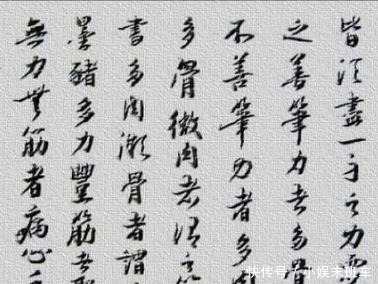 皆須盡一身之力
之善筆力者多骨
不善筆力者多
多骨微肉者謂之筋
書多肉微骨者謂
墨豬多力豐筋者聖
無力無筋者病
快传号/小娱未班车